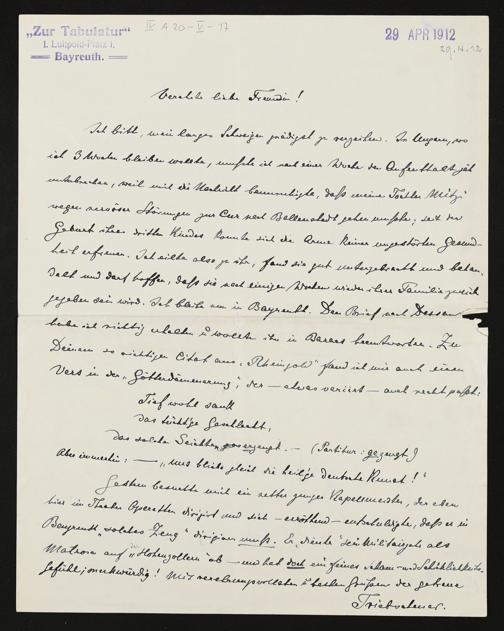 „Zur Tabulatur"
1. Luitpold-Platz 1.
Bayreuth.
IV A 20 - V - 17
29 APR 1912
29.4.12
Verehrte liebe Freundin!
Ich bitt, mein langes Schweigen gnädigst zu verzeihen. In Ungarn, wo
ich 3 Wochen bleiben wollte, mußte ich nach einer Woche den Aufenthalt jäh
unterbrechen, weil mich die Nachricht beunruhigte, daß meine Tochter Mitzi
wegen nervöser Störungen zur Cur nach Ballenstedt gehen mußte; seit der
Geburt ihres dritten Kindes konnte sich die Arme keiner ungestörten Gesund-
heit erfreuen. Ich eilte also zu ihr, fand sie gut untergebracht und behan-
delt und darf hoffen, daß sie nach einigen Wochen wieder ihrer Familie zurück
gegeben sein wird. Ich bleibe nun in Bayreuth. Den Brief nach Dessau
habe ich richtig erhalten u wollte ihn in beantworten. Zu
Deinem so richtigen Citat aus „Rheingold" fand ich mir auch einen
Vers in der „Götterdämmerung", der — etwas variirt — auch recht paßt:
Tief wohl sank
das tüchtige Geschlecht,
das solchen (Partitur: gezeugt!)
Aber immerhin: — „uns bliebe gleich die heilige deutsche Kunst!"
Gestern besuchte mich ein netter junger Kapellmeister, der eben
hier im Theater Operetten dirigirt und sich — erröthend — entschuldigte, daß er in
Bayreuth „solches Zeug" dirigieren muß. Er „diente" sein Militärjahr als
Matrose auf „Hohenzollern" ab — und hat doch ein feines Scham- und Schicklichkeits-
gefühl; merkwürdig! Mit verehrungsvollsten u besten Grüßen der getreue